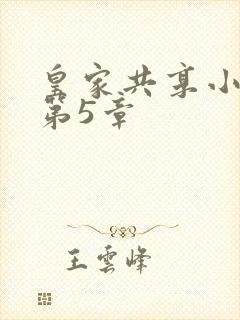 皇家共享小
第5章
王雲峰